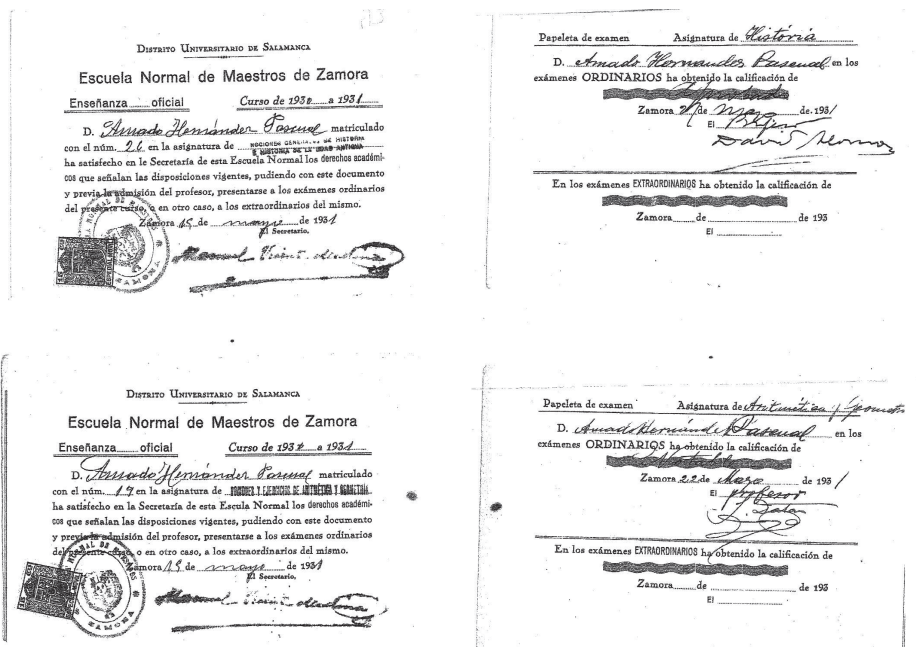 DISTRITO UNIVERSITARIO DE SALAMANCA
Escuela Normal de Maestros de Zamora
Enseñanza oficial Curso de 1930 a 1931
D. Amado Hernández Pascual matriculado
con el núm. 26 en la asignatura de NOCIONES GENERALES DE HISTORIA
E HISTORIA DE LA EDAD ANTIGUA
ha satisfecho en le Secretaría de esta Escuela Normal los derechos académi-
cos que señalan las disposiciones vigentes, pudiendo con este documento
y previa la admisión del profesor, presentarse a los exámenes ordinarios
del presente curso, o en otro caso, a los extraordinarios del mismo.
Zamora 15 de mayo de 1931
El Secretario,
Manuel
ZAMORA
Papeleta de examen Asignatura de História
D. Amado Hernandez Pascual en los
exámenes ORDINARIOS ha obtenido la calificación de
Aprobado
Zamora de de 1931
El
David
En los exámenes EXTRAORDINARIOS ha obtenido la calificación de
Zamora de de 193
El
DISTRITO UNIVERSITARIO DE SALAMANCA
Escuela Normal de Maestros de Zamora
Enseñanza oficial Curso de 1930 a 1931
D. Amado Hernández Pascual matriculado
con el núm. 19 en la asignatura de NOCIONES Y EJERCICIOS DE ARITMÉTICA Y GEOMETRÍA
ha satisfecho en la Secretaría de esta Escula Normal los derechos académi-
cos que señalan las disposiciones vigentes, pudiendo con este documento
y previa la admisión del profesor, presentarse a los exámenes ordinarios
del presente curso, o en otro caso, a los extraordinarios del mismo.
Zamora 15 de mayo de 1931
El Secretario,
Manuel
ZAMORA
Papeleta de examen Asignatura de Aritmética y Geometría
D. Amado Hernández Pascual en los
exámenes ORDINARIOS ha obtenido la calificación de
Notable
Zamora 22 de Mayo de 1931
El profesor
En los exámenes EXTRAORDINARIOS ha obtenido la calificación de
Zamora de de 193
El